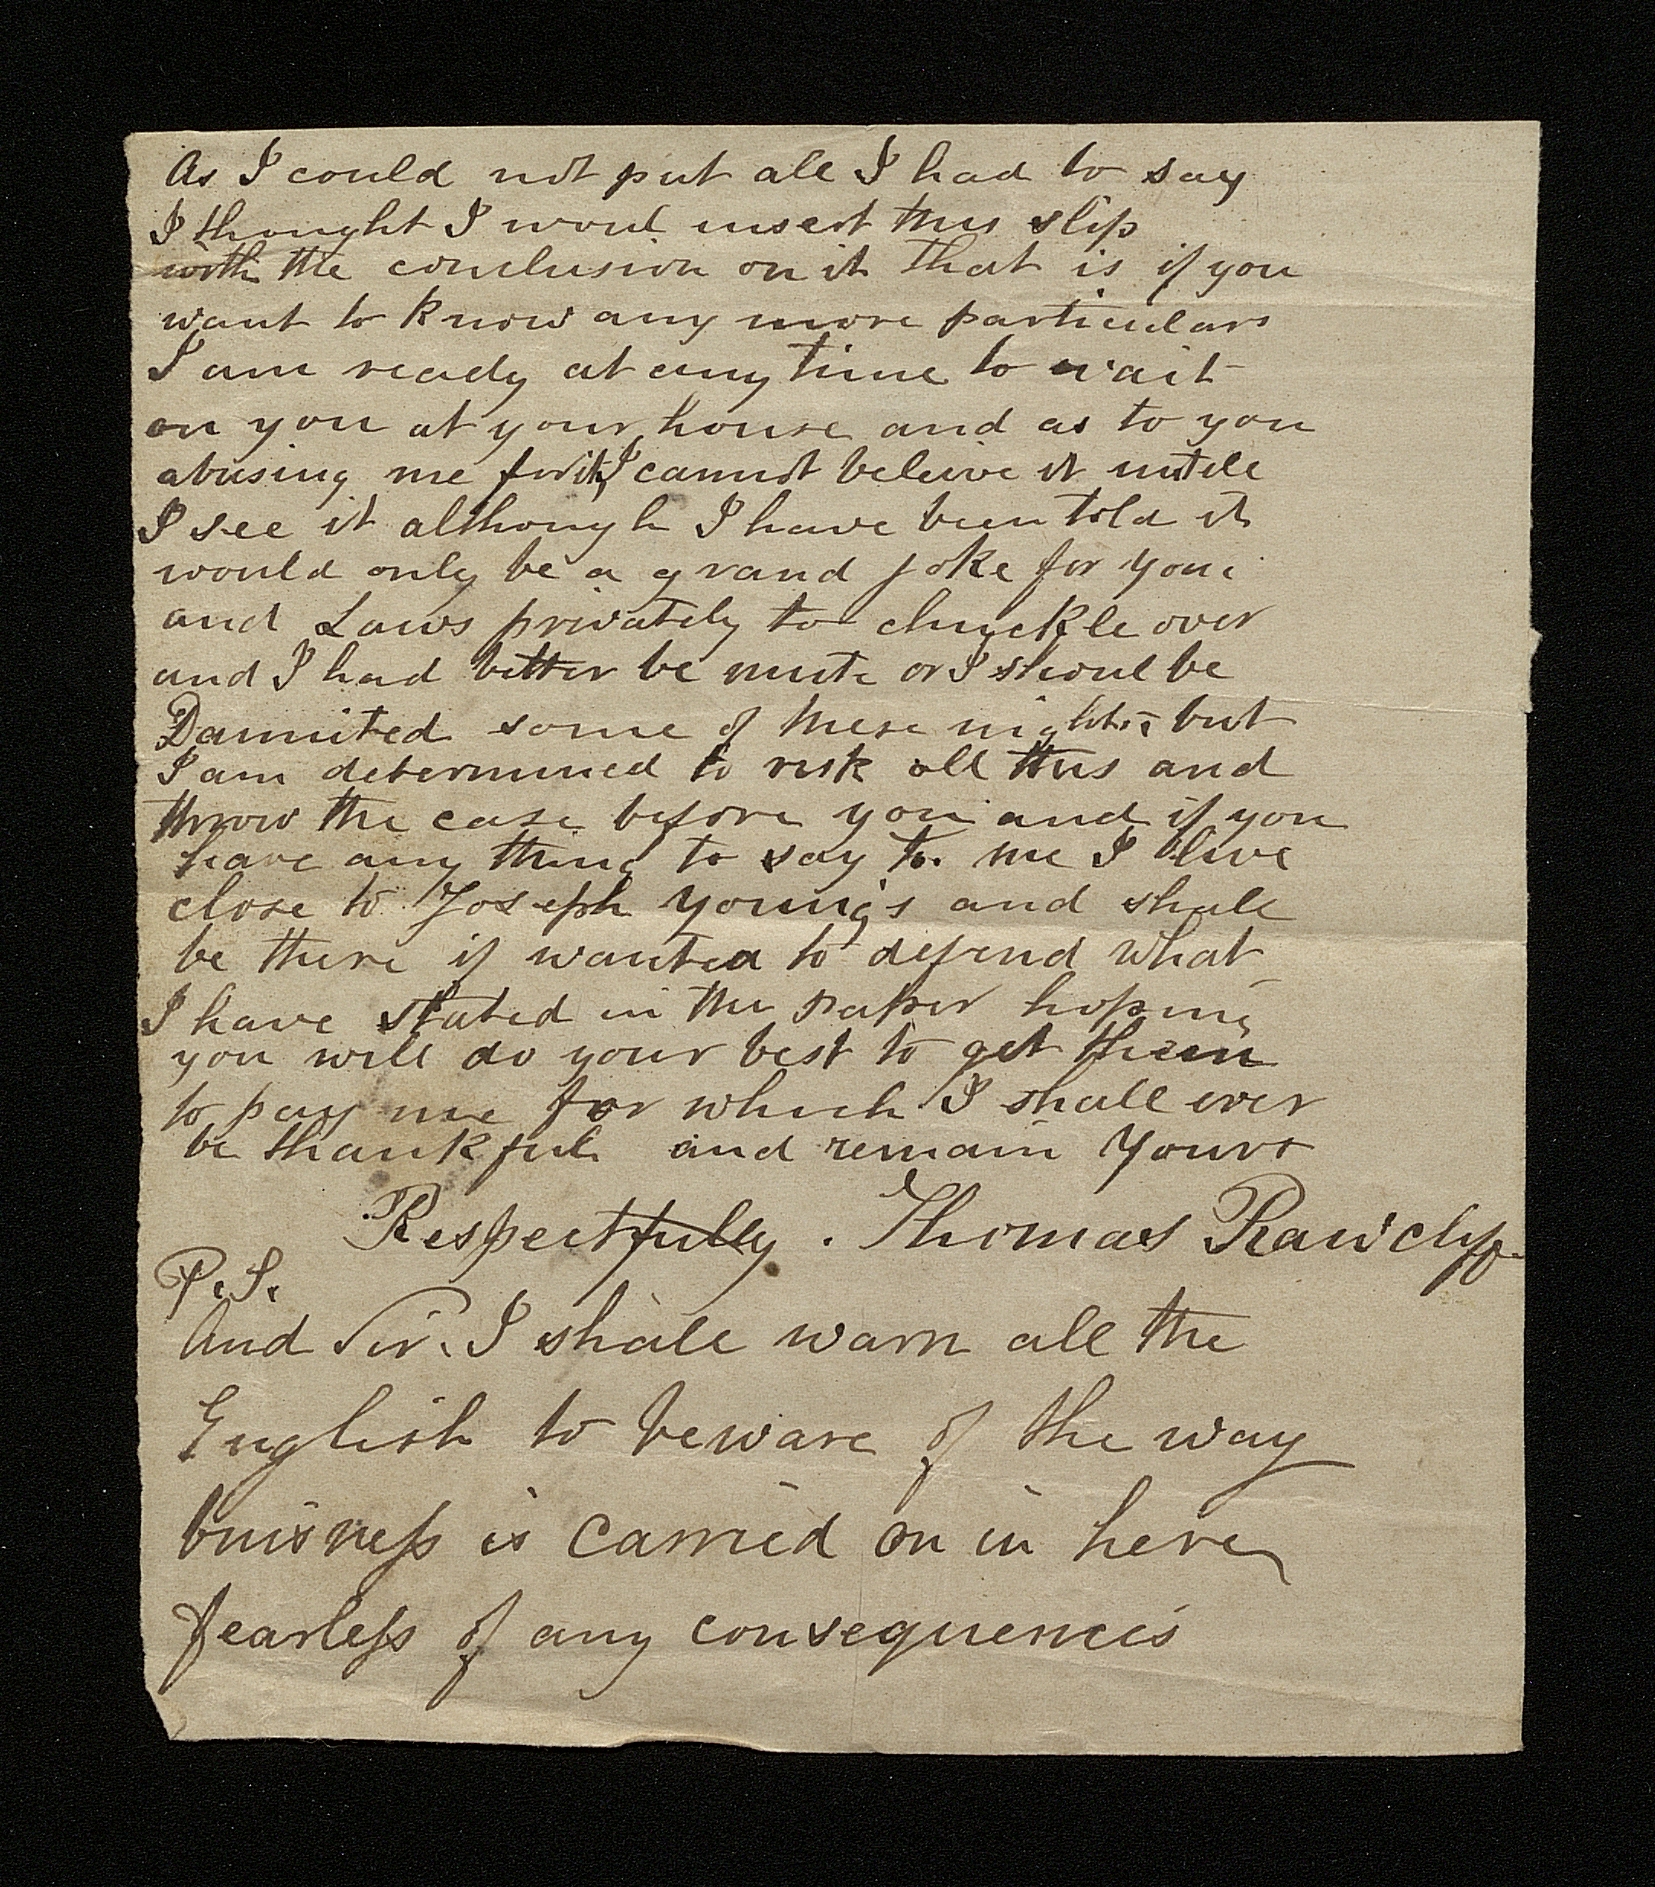 As I could not put all I had to say
I thought I woul insert this slip
with the conclusion on it that is if you
want to know any more particulars
I am ready at any time to wait
on you at your house and as to you
abusing me for it, I cannot beleive it untill
I see it although I have been told it
would only be a grand joke for you
and Laws privately to chuckle over
and I had better be mute or I shoul be
Dammited some of these nights, but
I am determined to risk all this and
throw the case before you and if you
have any thing to say to me I live
close to Joseph Young's and shall
be there if wanted to defend what
I have stated in the paper hoping
you will do your best to get them
to pay me for which I shall ever
be thankful and remain Yours
Respectfully. Thomas Rawclyffe
P.S.
And Sir. I shall warn all the
English to beware of the way
buisness is carried on in here
fearless of any consequences